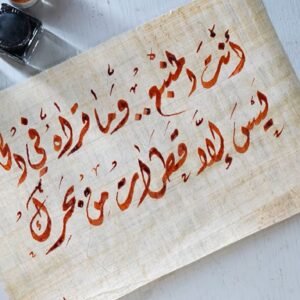 أنتَ المنبع.. وَمَا تراهُ في
ليسَ إلاَّ قطراتٌ مِنْ بحرِكْ